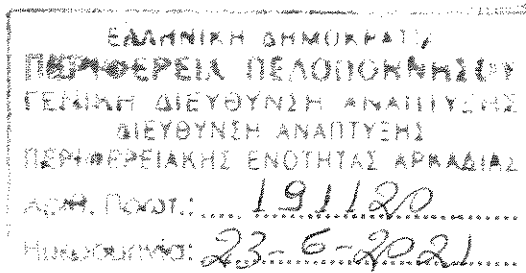 ΕΛΛΗΝΙΚΗ ΔΗΜΟΚΡΑΤΙΑ
ΠΕΡΙΦΕΡΕΙΑ ΠΕΛΟΠΟΝΝΗΣΟΥ
ΓΕΝΙΚΗ ΔΙΕΥΘΥΝΣΗ ΑΝΑΠΤΥΞΗΣ
ΔΙΕΥΘΥΝΣΗ ΑΝΑΠΤΥΞΗΣ
ΠΕΡΙΦΕΡΕΙΑΚΗΣ ΕΝΟΤΗΤΑΣ ΑΡΚΑΔΙΑΣ
Αριθ. Πρωτ.: 191120
Ημερομηνία: 23-6-2021